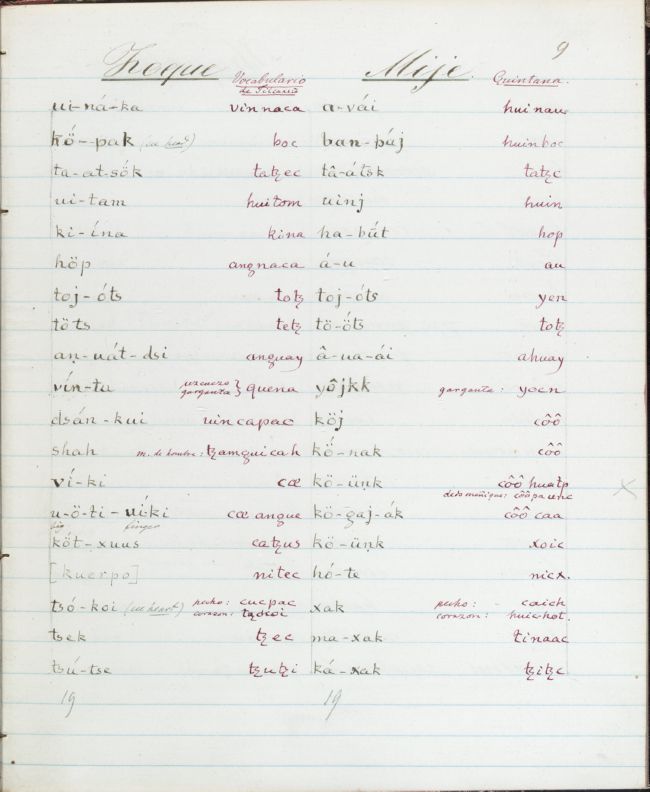 9
Zoque Vocabulario Mije. Quintana.
ui-ná-ka vinnaca a-vái
kŏ́-pak boc ban-páj huinboc
ta-at-sŏ́k tatꜩec tâ-átsk tatꜩc
ui-tam huitom uinj huin
ki-ína kina ha-bŭ́t hop
höp angnaca á-u au
toj-óts totꜩ toj-óts yen
töts tetꜩ tö-ŏ́ts totꜩ
an-uát-dsi anguay â-ua-ái ahuay
vín-ta garganta } quena yôjkk garganta: yoen
dsán-kui uincapac köj côô
shah m. de hombre: tꜩamguicah kŏ́-nak côô
ví-ki cœ kö-üṇk côô huatp
u-ö-ti-uíki cœ angue kö-gaj-ák côô caa
big finger
kŏ́t-xuus catꜩus kö-üṇk xoic
[kuerpo] nitec hó-te nicx.
tsó-koi (see heart) pecho: cucpac xak pecho: caich
corazon: corazon: huic hot.
tsek tꜩec ma-xak tinaac
tsú-tse tꜩutꜩi ká-xak tꜩitꜩc
19 19